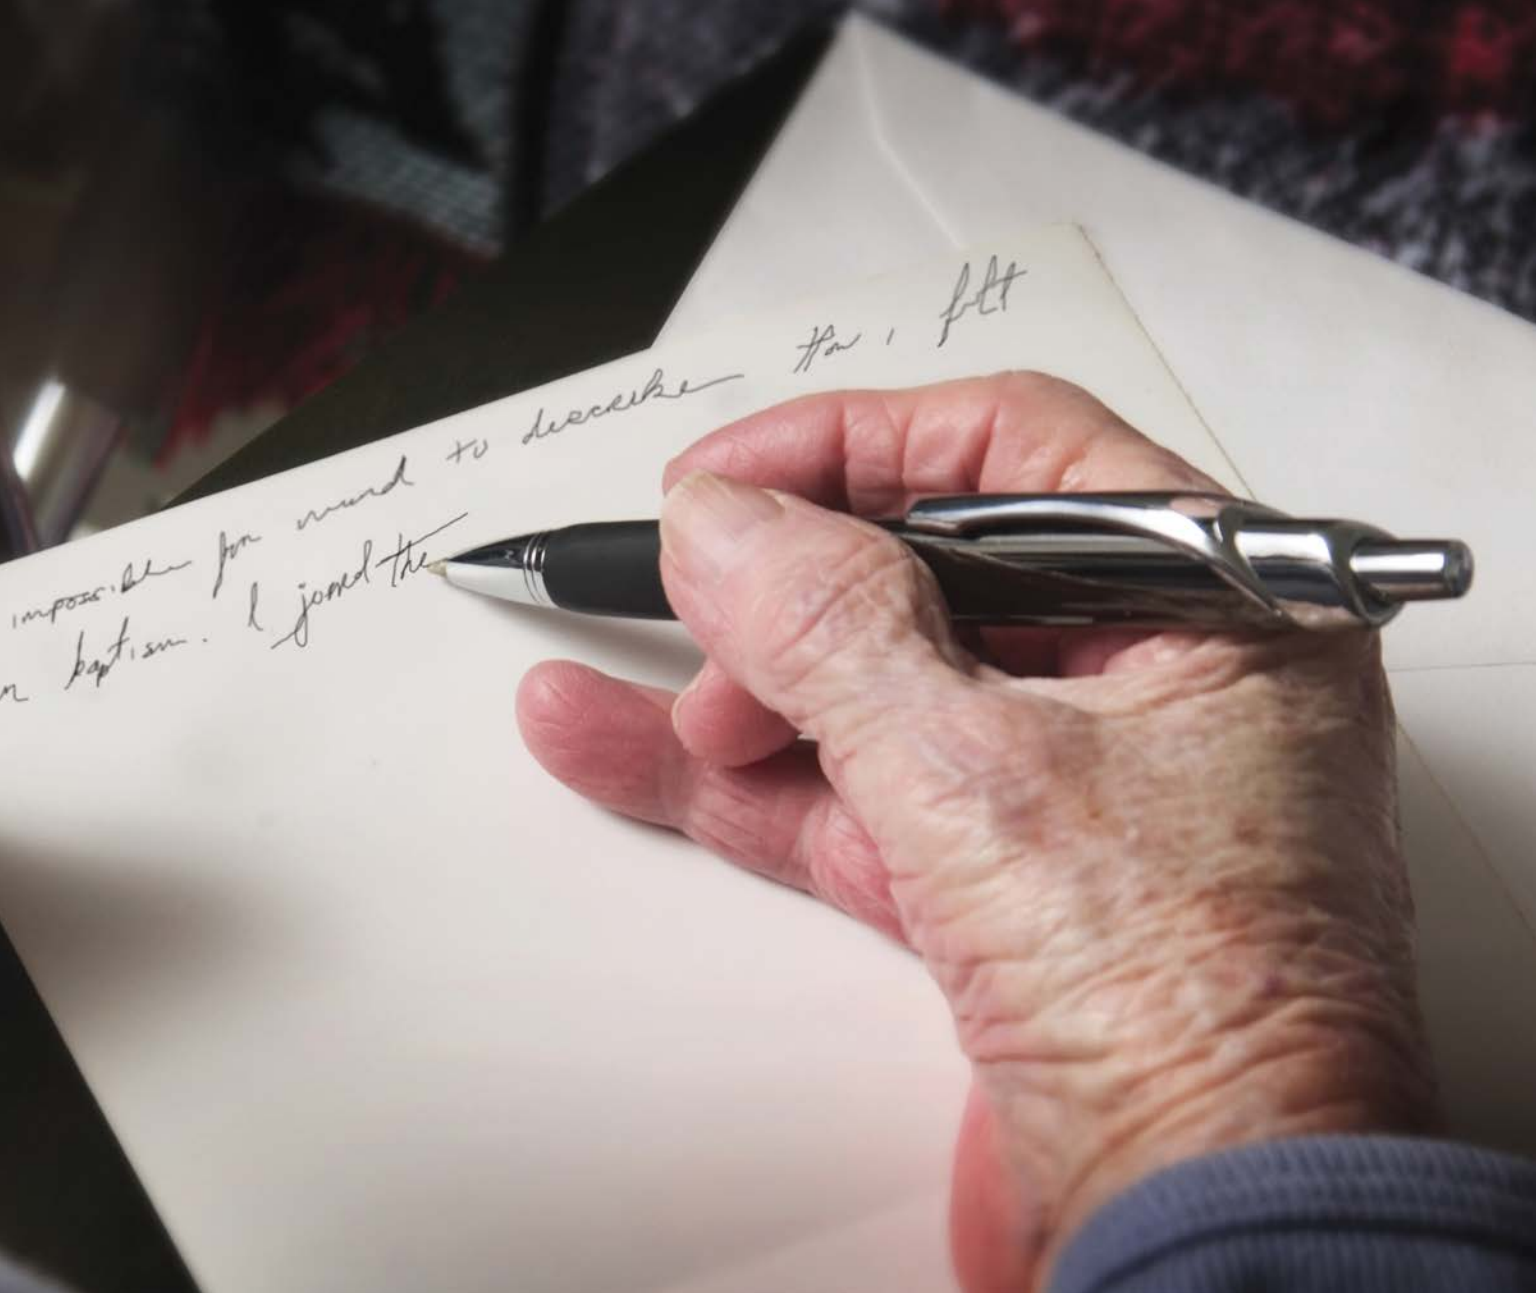 impossible for mind to describe how i felt
n baptism. I joined the